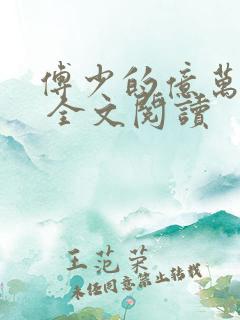 傅少的億萬
全文閱讀
王范荣
未经同意禁止转载